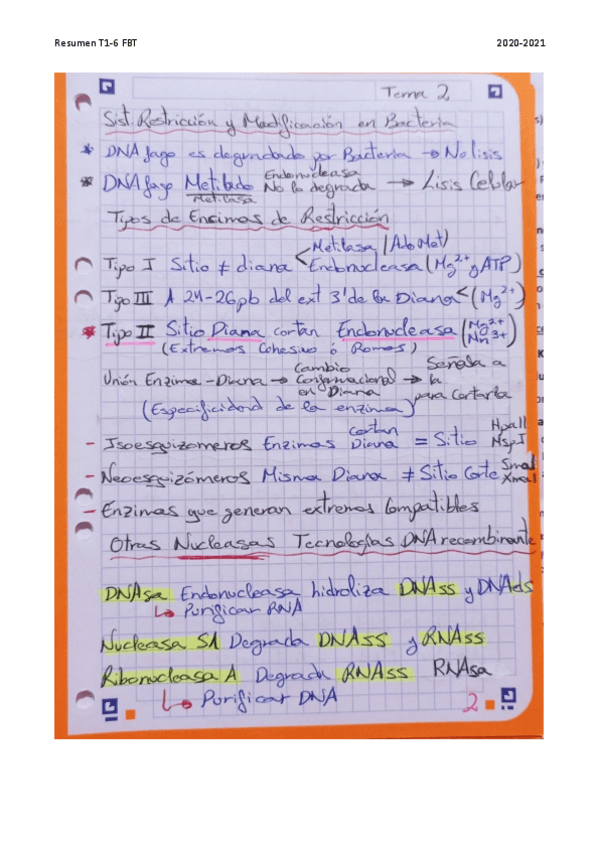 Resumen T1-6 FBT 2020-2021
Tema 2
Sist. Restricción y Modificación en Bacteria
* DNA fago es degradado por Bacteria → No lisis
* DNA fago Metilado Endonucleasa No lo degrada → Lisis Celular
Metilasa
Tipos de Enzimas de Restricción
Metilasa (AdoMet)
Tipo I Sitio ≠ diana < Endonucleasa (Mg2+ y ATP)
Tipo III A 24-26pb del ext 3' de la Diana < (Mg2+)
* Tipo II Sitio Diana cortan Endonucleasa (Mg2+
(Extremos Cohesivo ó Romos)
Unión Enzima-Diana → Cambio Conformacional en Diana → Señala a la para Cortarla
(Especificidad de la enzima)
- Isoesquizómeros Enzimas cortan Diana = Sitio HpaII MspI
- Neoesquizómeros Misma Diana ≠ Sitio Corte SmaI XmaI
- Enzimas que generan extremos Compatibles
Otras Nucleasas Tecnologías DNA recombinante
DNAsa Endonucleasa hidroliza DNAss y DNAds
↳ Purificar RNA
Nucleasa S1 Degrada DNAss y RNAss
Ribonucleasa A Degrada RNAss RNAsa
↳ Purificar DNA
2